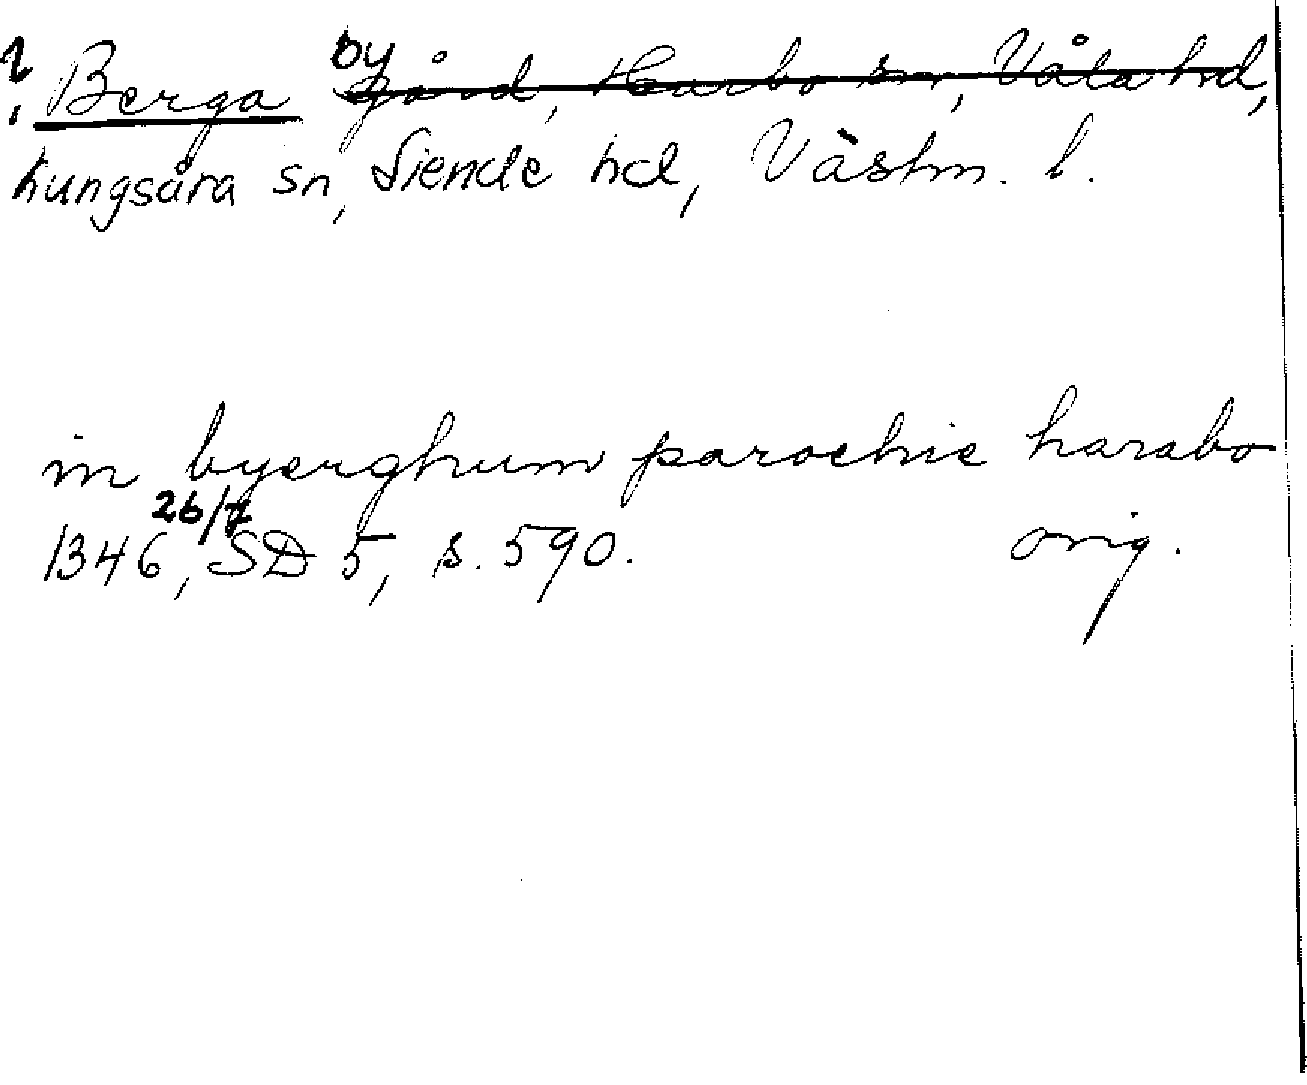 ? Berga by ~~gård, Harbo sn, Våla hd,~~
Kungsåra sn, Siende hd, Västm. l.
in byerghum parochie harabo
1346 26/7, SD 5, s. 590. orig.